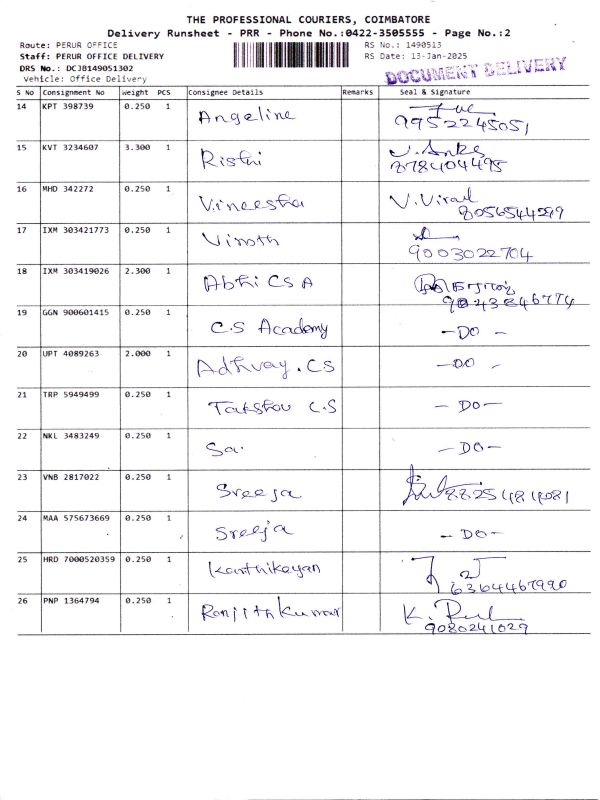 THE PROFESSIONAL COURIERS, COIMBATORE
Delivery Runsheet - PRR - Phone No.:0422-3505555 - Page No.:2
Route: PERUR OFFICE RS No.: 1490513
Staff: PERUR OFFICE DELIVERY RS Date: 13-Jan-2025
DRS No.: DCJB149051302 DOCUMENT DELIVERY
Vehicle: Office Delivery
S No Consignment No Weight PCS Consignee Details Remarks Seal & Signature
14 KPT 398739 0.250 1 Angeline
9952245051
15 KVT 3234607 3.300 1 Rishi
878404495
16 MHD 342272 0.250 1 Vineesha
8056544299
17 IXM 303421773 0.250 1 Vinoth
9003022704
18 IXM 303419026 2.300 1 Abhi CSA
19 GGN 900601415 0.250 1 C.S Academy -DO-
20 UPT 4089263 2.000 1 Adhvay.CS -DO-
21 TRP 5949499 0.250 1 C.S -DO-
22 NKL 3483249 0.250 1 Sa. -DO-
23 VNB 2817022 0.250 1 Sreeja
24 MAA 575673669 0.250 1 Sreeja -DO-
25 HRD 7000520359 0.250 1 Karthikeyan
6364467990
26 PNP 1364794 0.250 1 Ranjithkumar
9080241029